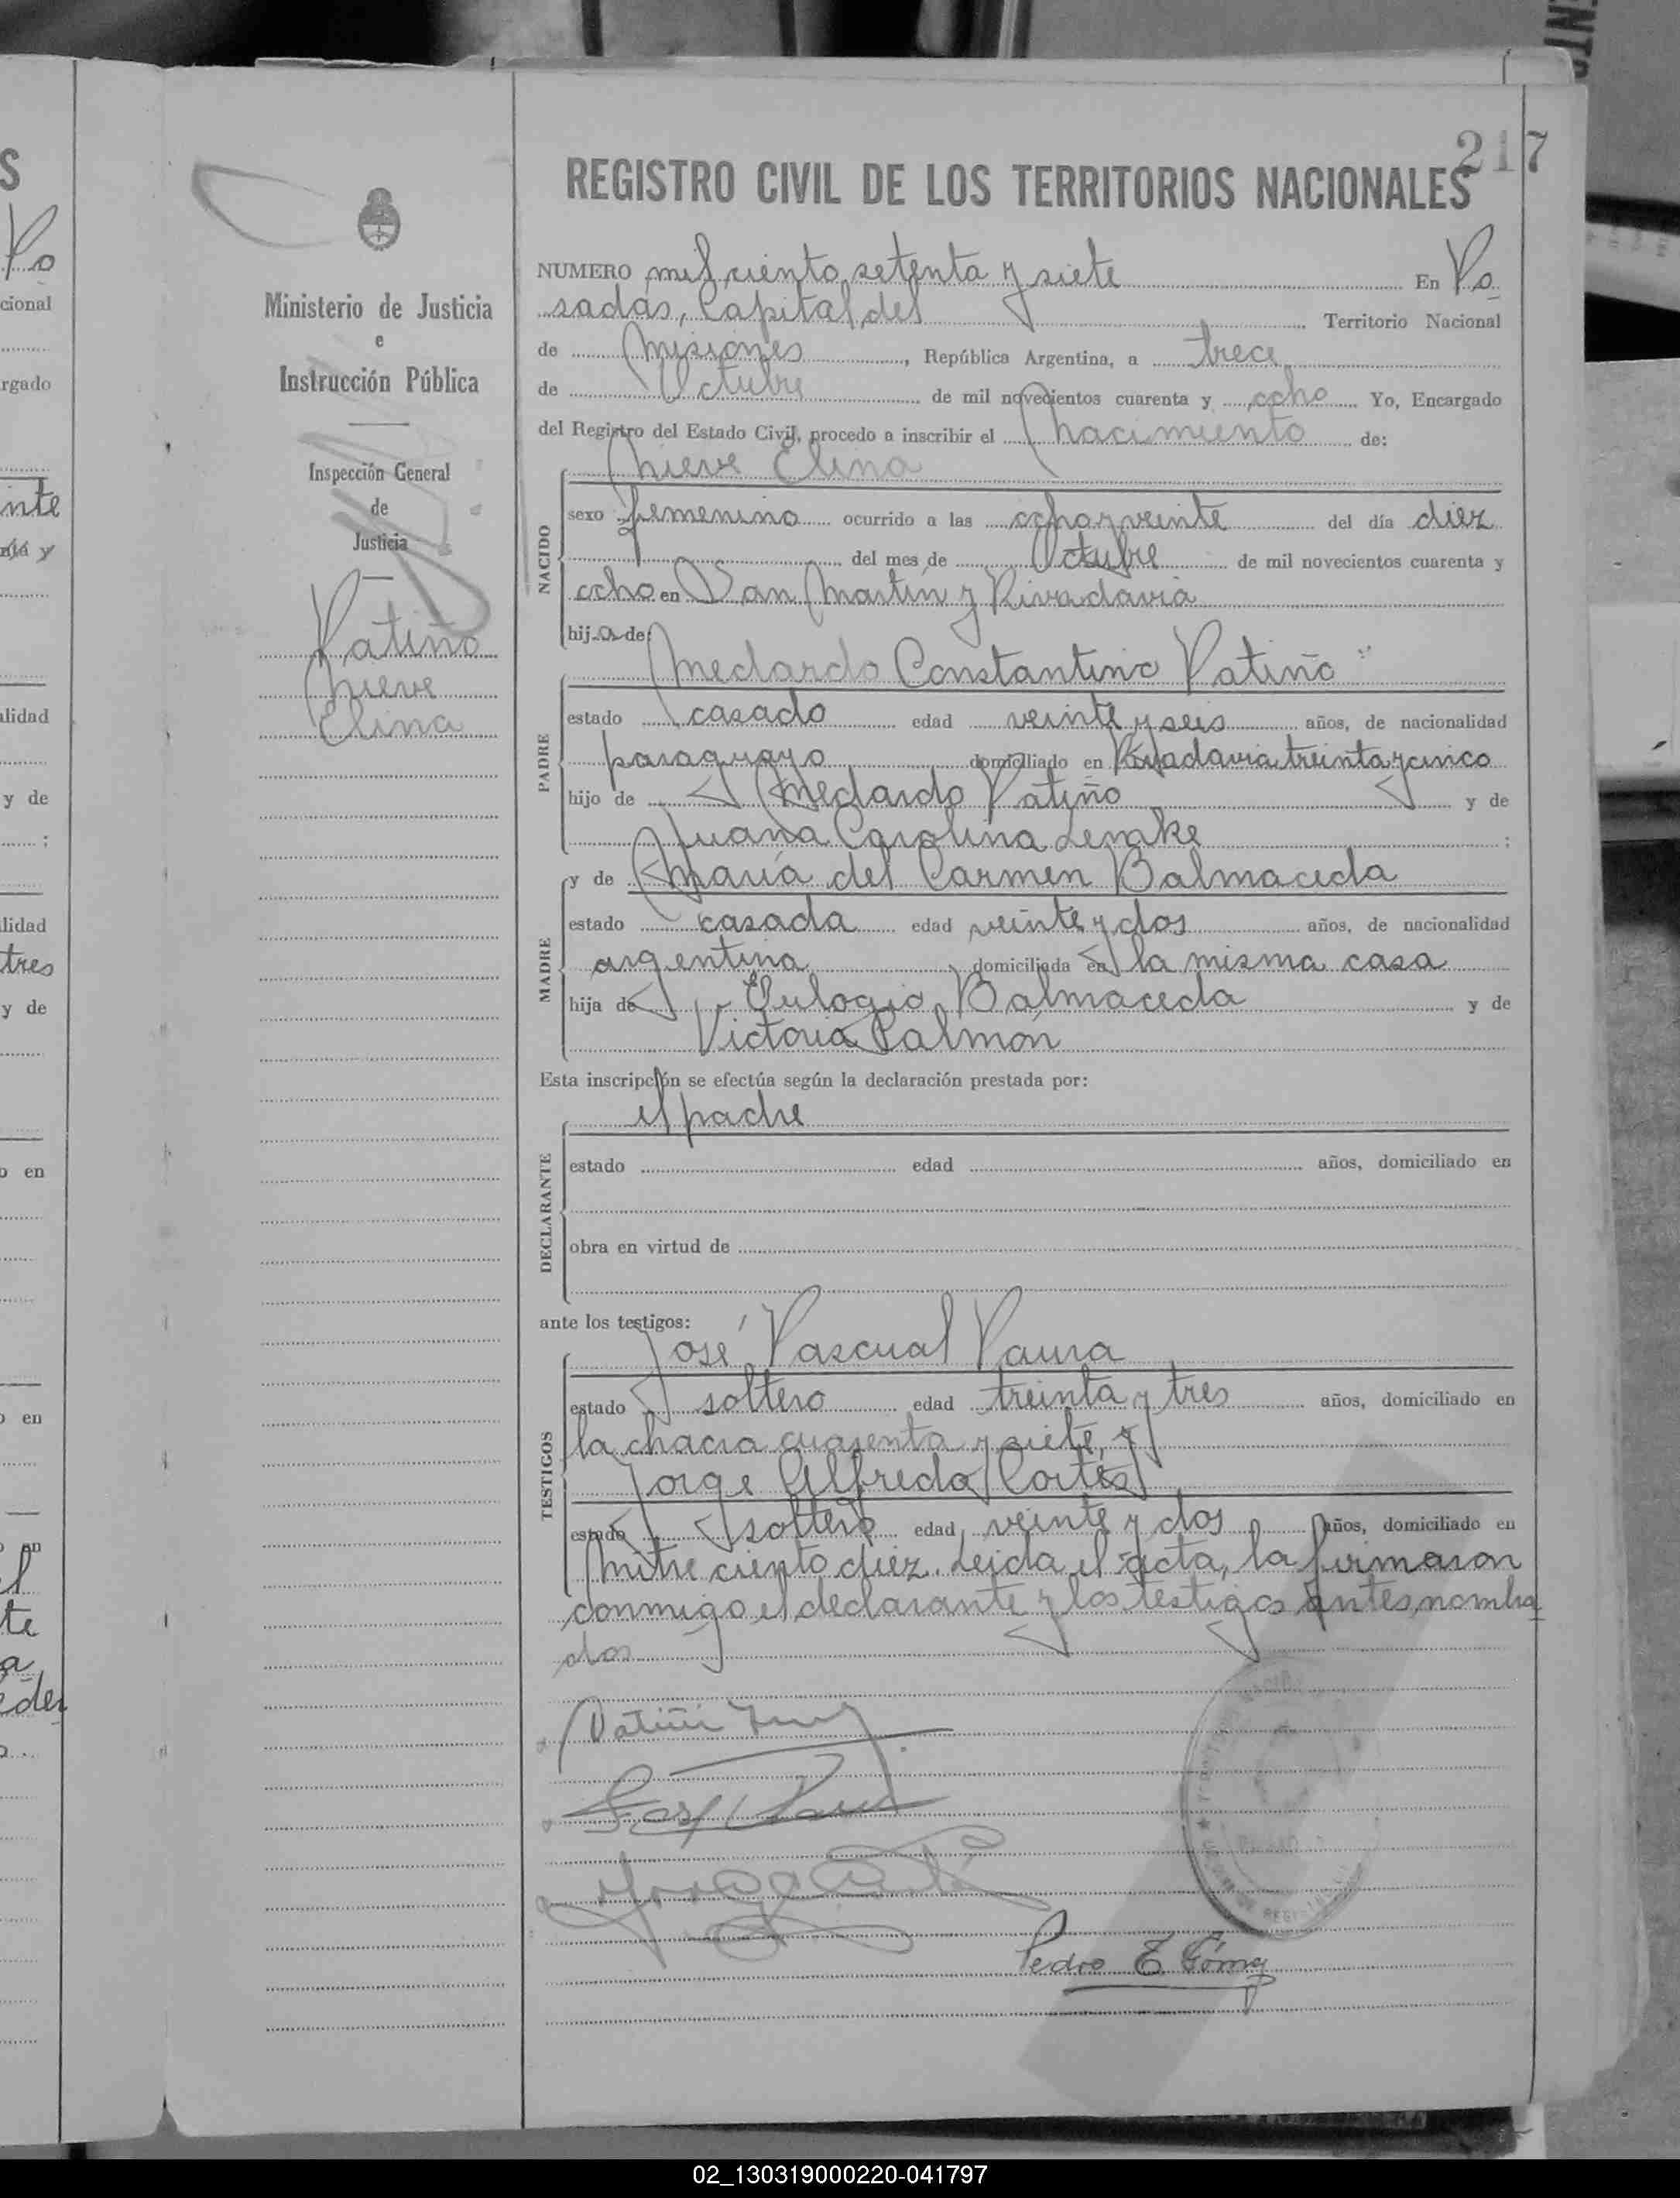 217
REGISTRO CIVIL DE LOS TERRITORIOS NACIONALES
Ministerio de Justicia
e
Instrucción Pública
Inspección General
de
Justicia
Patiño
Nieve
Elina
NUMERO mil ciento setenta y siete En Po
sadas, Capital del Territorio Nacional
de Misiones, República Argentina, a trece
de Octubre de mil novecientos cuarenta y ocho Yo, Encargado
del Registro del Estado Civil, procedo a inscribir el nacimiento de:
Nieve Elina
NACIDO
sexo femenino ocurrido a las ocho y veinte del día diez
del mes de Octubre de mil novecientos cuarenta y
ocho en San Martín y Rivadavia
hij a de:
Medardo Constantino Patiño
PADRE
estado casado edad veinte y seis años, de nacionalidad
paraguayo domiciliado en Rivadavia treinta y cinco
hijo de Medardo Patiño y de
Juana Carolina Lemke;
y de María del Carmen Balmaceda
MADRE
estado casada edad veinte y dos años, de nacionalidad
argentina domiciliada en la misma casa
hija de Eulogio Balmaceda y de
Victoria Palmón
Esta inscripción se efectúa según la declaración prestada por:
el padre
DECLARANTE
estado edad años, domiciliado en
obra en virtud de
ante los testigos:
José Pascual Paura
TESTIGOS
estado soltero edad treinta y tres años, domiciliado en
la chacra cuarenta y siete, y
Jorge Alfredo Cortés
estado soltero edad veinte y dos años, domiciliado en
Mitre ciento diez. Leida el acta, la firmaron
conmigo el declarante y los testigos antes nombra
dos
Pedro E Gómez
02_130319000220-041797